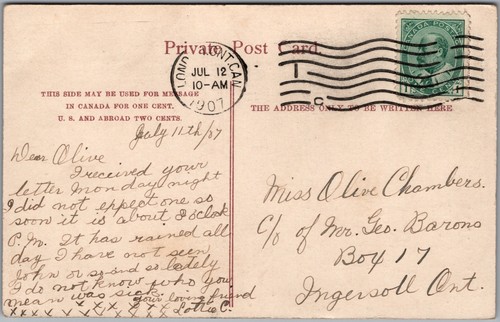 Private Post Card
LONDON, ONT. CAN.
JUL 12
10-AM
1907
CANADA POSTAGE
THIS SIDE MAY BE USED FOR MESSAGE
IN CANADA FOR ONE CENT.
U. S. AND ABROAD TWO CENTS.
THE ADDRESS ONLY TO BE WRITTEN HERE
July 11th/07
Dear Olive
I received your
letter Monday night
I did not expect one so
soon it is about 8 oclock
P.M. It has rained all
day I have not seen
John or so and so lately
I do not know who you
mean was sick.
your loving friend
x x x x x x x x x Lottie C.
Miss Olive Chambers.
c/o of Mr. Geo. Barons
Box 17
Ingersoll Ont.